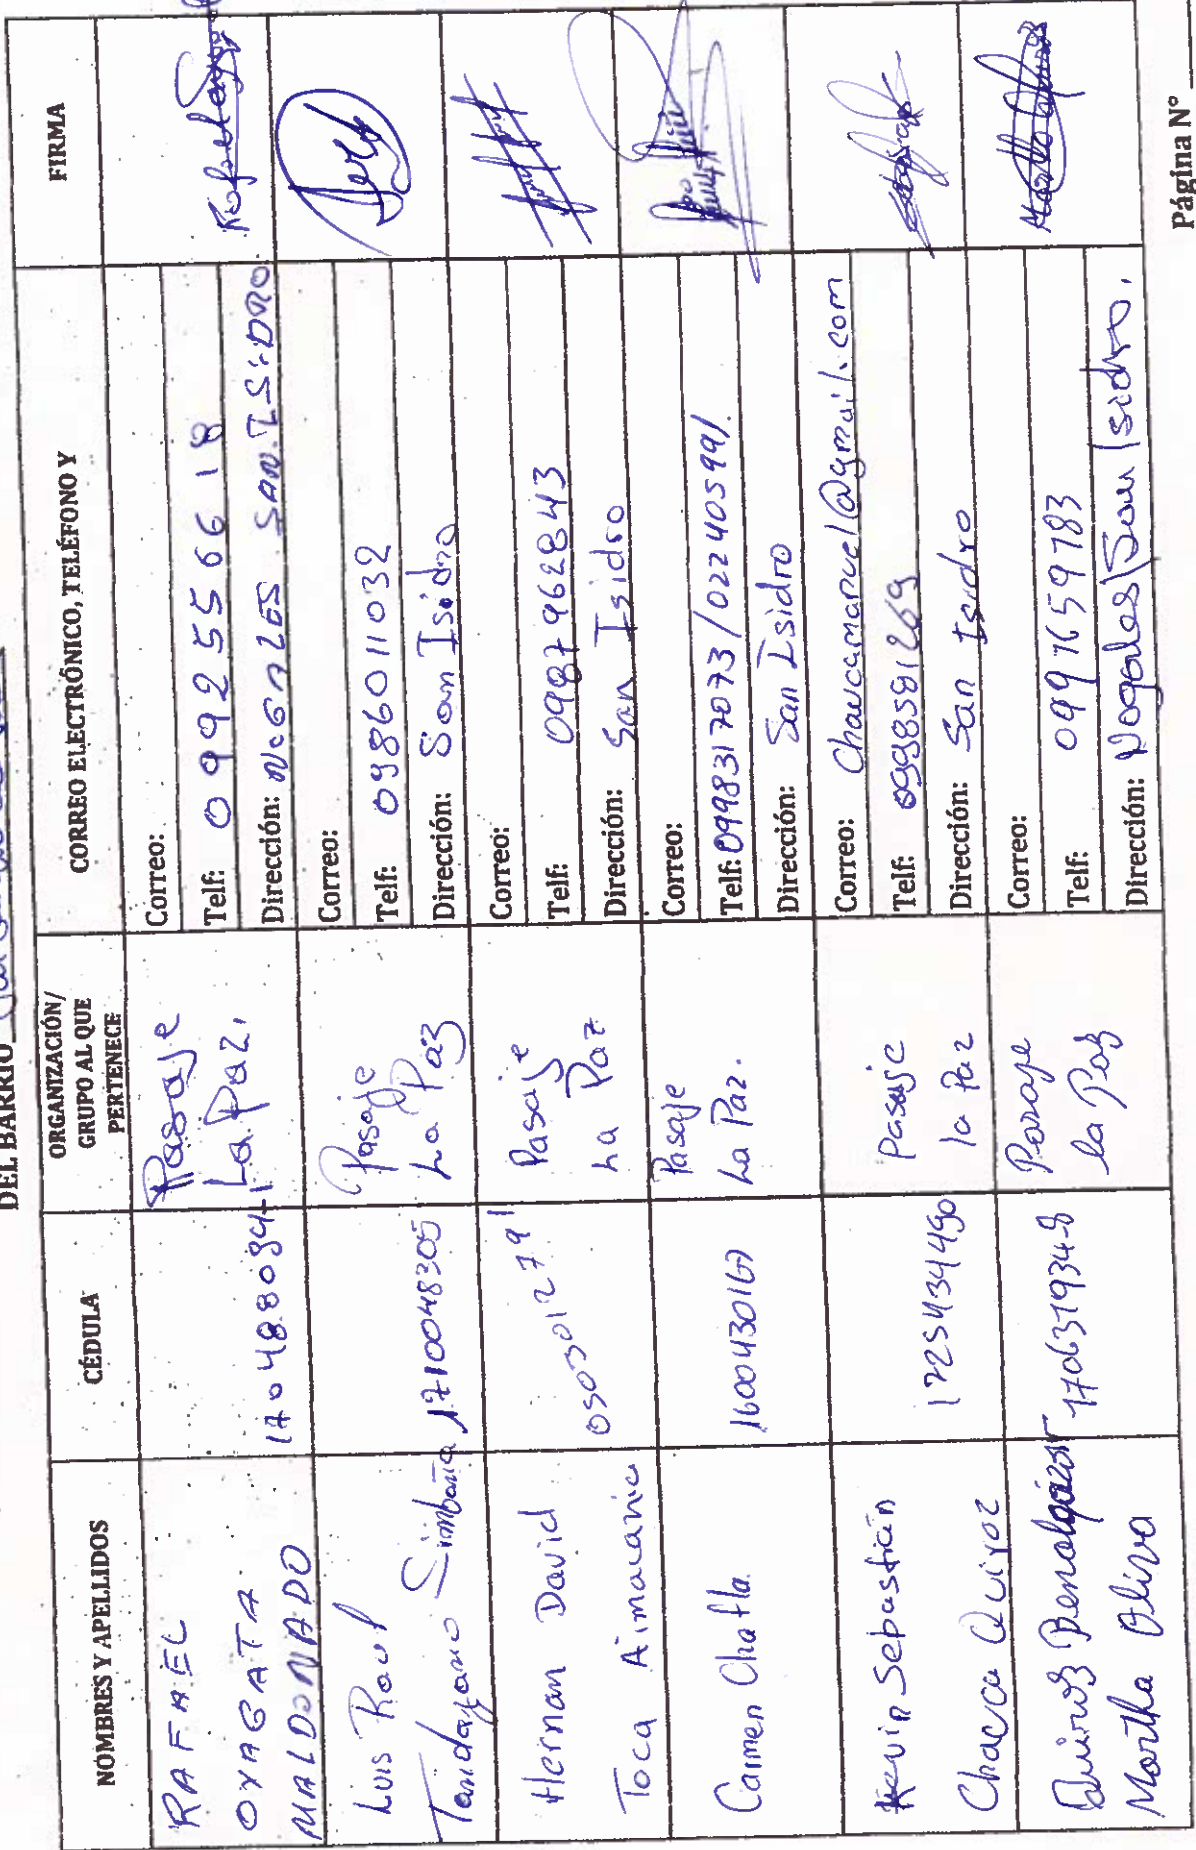 DEL BARRIO
NOMBRES Y APELLIDOS
CÉDULA
ORGANIZACIÓN/
GRUPO AL QUE
PERTENECE
CORREO ELECTRÓNICO, TELÉFONO Y
FIRMA
RAFAEL
OYAGATA
MALDONADO
170488084-1
Pasaje
La Paz.
Correo:
Telf: 0992556618
Dirección: NOGALES SAN.ISIDRO
Luis Raul
Tandayamo Simbaña
1710048305
Pasaje
La Paz
Correo:
Telf: 0986011032
Dirección: San Isidro
Hernan David
Toca Aimacaña
0503012791
Pasaje
La Paz
Correo:
Telf: 0987962843
Dirección: San Isidro
Carmen Chafla.
1600430167
Pasaje
La Paz.
Correo:
Telf: 0998317073/022240599/.
Dirección: San Isidro
Kevin Sebastián
Chacca Quiroz
1725434490
Pasaje
la Paz
Correo: Chaucamanuel@gmail.com
Telf: 0998581269
Dirección: San Isidro
Quiroz
Martha Oliva
170637934-8
Pasaje
la Paz
Correo:
Telf: 0997659783
Dirección: Nogales/San Isidro.
Página N°